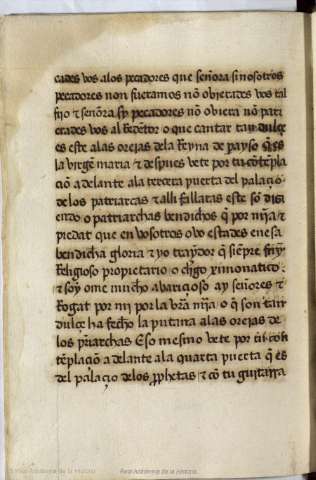 cades vos alos pecadores que señora si nosotros
pecadores non fueramos nõ obierades vos tal
fijo & señora sy pecadores nõ obiera nõ pari
erades vos al Redẽtor o que cantar tan dulçe
es este alas orejas dela Reyna de payso q̃ es
la virgẽ maria & despues vete por tu cõtẽpla
çiõ adelante ala terçera puerta del palaçio
delos patriarcas & alli fallaras este sõ dizi
endo o patriarchas bendichos q̃ por mjã &
piedat que en vosotros ovo estades enesa
bendicha gloria & yo traydor q̃ siẽpre fuy
Religioso propietario o clẽgo ximonatico
& soy ome mucho abariçioso ay señores &
Rogat por mi por la vr̃a mjã o q̃ son tan
dulçe ha fecho la putana alas orejas de
los pr̃iarchas Eso mesmo vete por tu con
tẽplaçiõ adelante ala quarta puerta q̃ es
del palaçio delos ꝓphetas & cõ tu guitarra
Real Academia de la Historia
Real Academia de la Historia